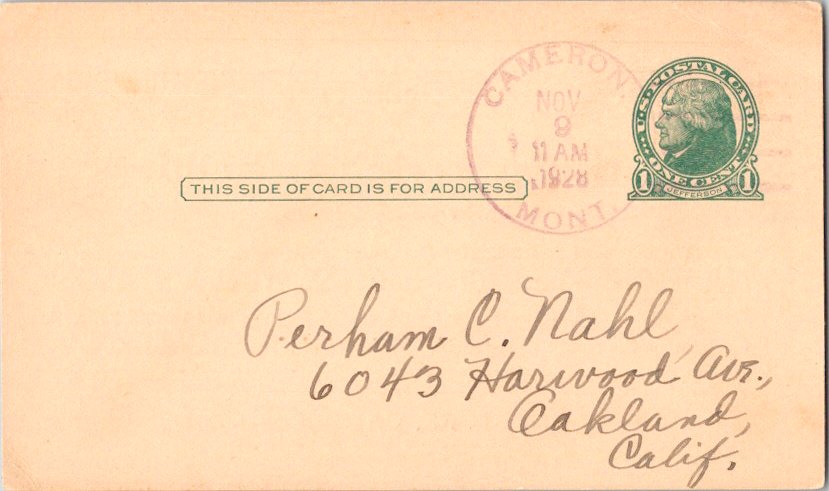 CAMERON,
NOV
9
11 AM
1928
MONT.
U.S. POSTAL CARD
ONE CENT
1 JEFFERSON 1
THIS SIDE OF CARD IS FOR ADDRESS
Perham C. Nahl
6043 Harwood Ave.,
Oakland,
Calif.